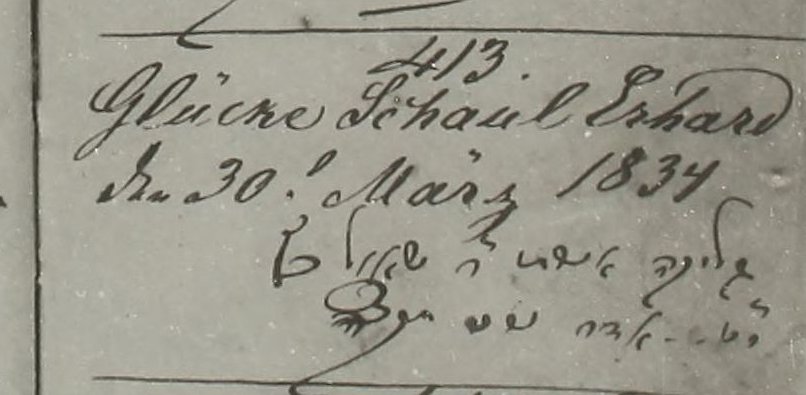 413.
Glücke Schaul Erhard
den 30. März 1834
גליקה אשת ר' שאול
אדר